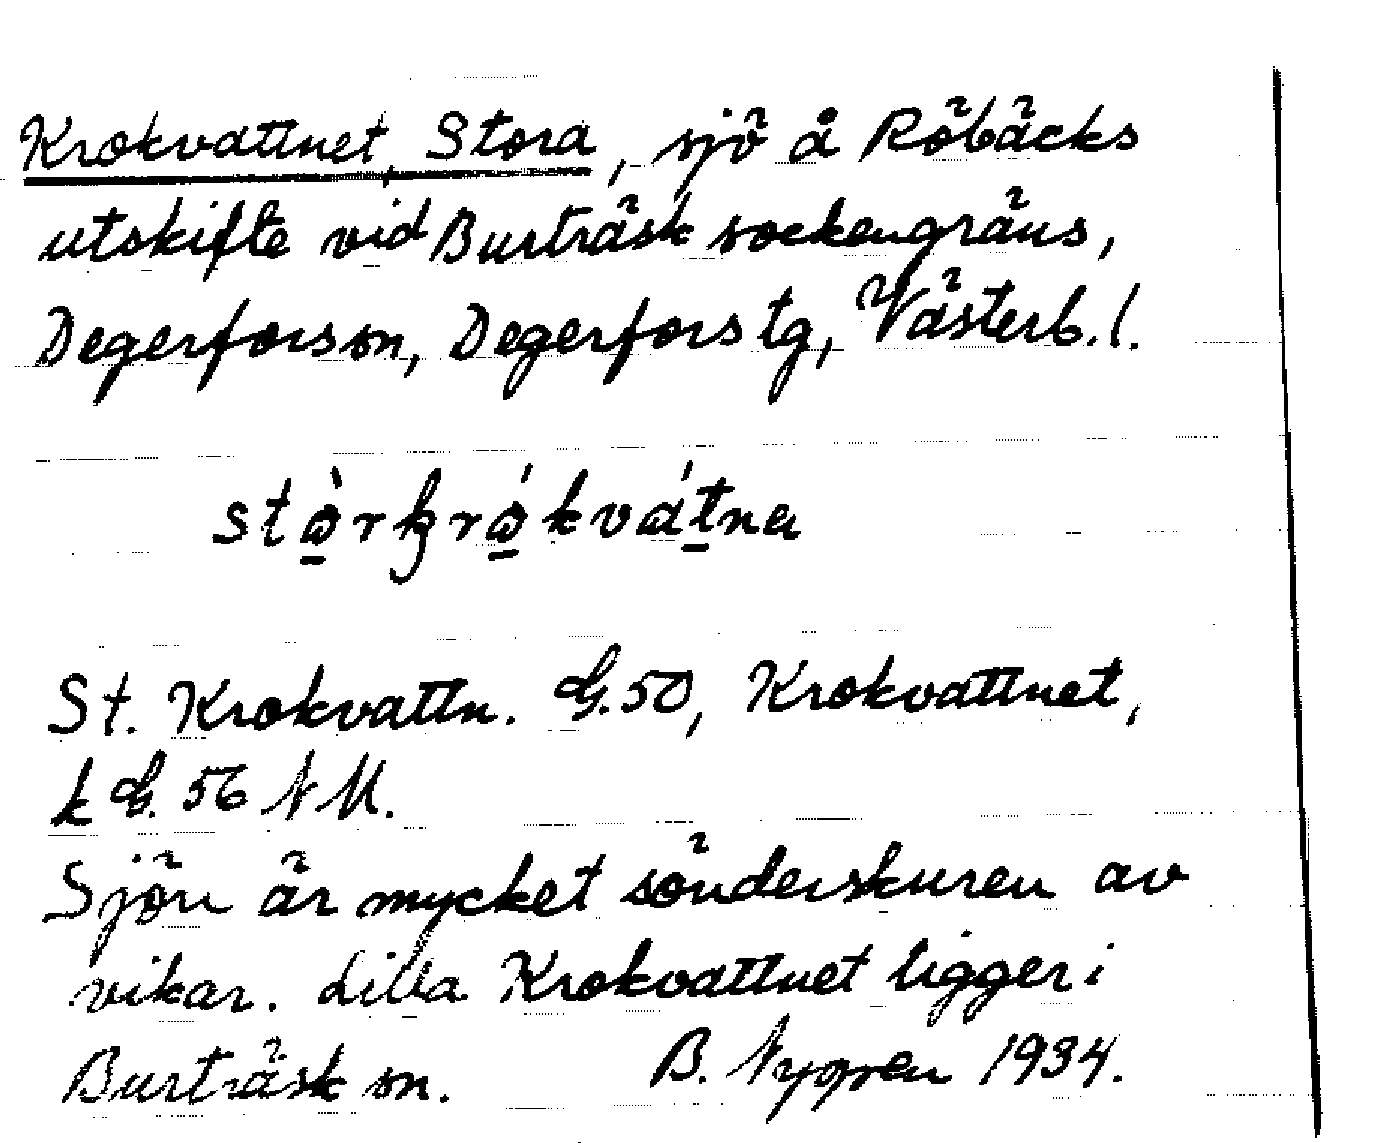 Krokvattnet, Stora, sjö å Röbäcks
utskifte vid Burträsk sockengräns,
Degerfors sn, Degerfors tg, Västerb. l.
stò̱rkró̱kvát̲na
St. Krokvattn. G. 50, Krokvattnet,
k G. 56 NM.
Sjön är mycket sönderskuren av
vikar. Lilla Krokvattnet ligger i
Burträsk sn. B. Nygren 1934.